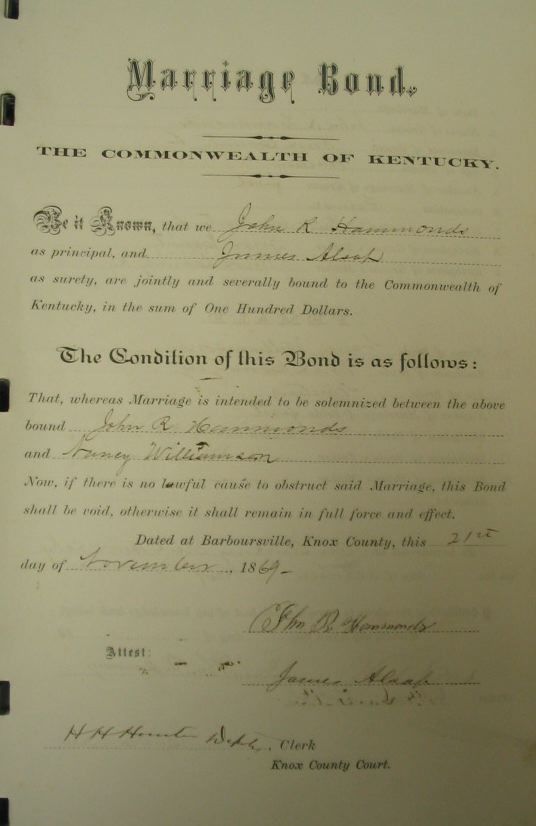 Marriage Bond.
THE COMMONWEALTH OF KENTUCKY.
Be it Known, that we John R Hammonds
as principal, and James Alsap
as surety, are jointly and severally bound to the Commonwealth of
Kentucky, in the sum of One Hundred Dollars.
The Condition of this Bond is as follows:
That, whereas Marriage is intended to be solemnized between the above
bound John R Hammonds
and Nancy Williamson
Now, if there is no lawful cause to obstruct said Marriage, this Bond
shall be void, otherwise it shall remain in full force and effect.
Dated at Barboursville, Knox County, this 21st
day of November, 1869-
John R Hammonds
Attest:
James Alsap
H H Clerk
Knox County Court.